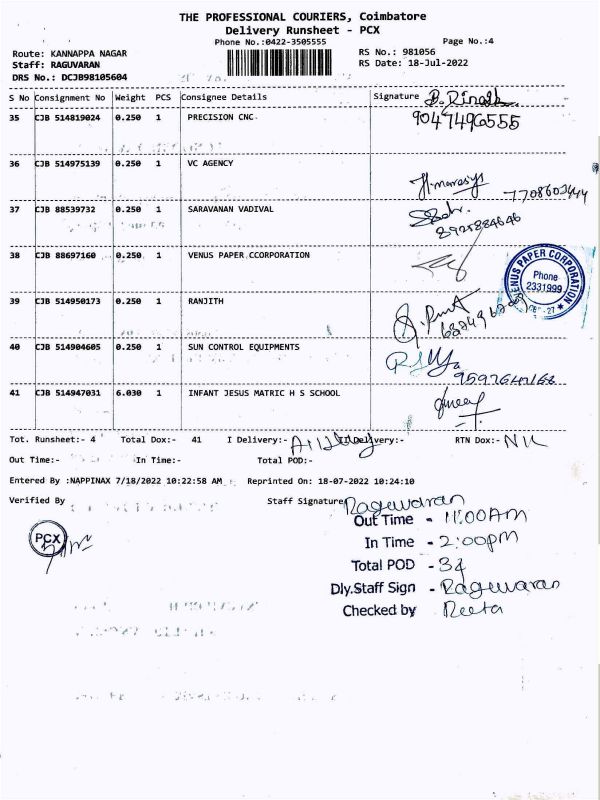 THE PROFESSIONAL COURIERS, Coimbatore
Delivery Runsheet - PCX
Phone No.:0422-3505555 Page No.:4
Route: KANNAPPA NAGAR RS No.: 981056
Staff: RAGUVARAN RS Date: 18-Jul-2022
DRS No.: DCJB98105604
S No Consignment No Weight PCS Consignee Details Signature
35 CJB 514819024 0.250 1 PRECISION CNC 9047496555
36 CJB 514975139 0.250 1 VC AGENCY
37 CJB 88539732 0.250 1 SARAVANAN VADIVAL
38 CJB 88697160 0.250 1 VENUS PAPER CCORPORATION
VENUS PAPER CORPORATION
Phone
2331999
39 CJB 514950173 0.250 1 RANJITH
40 CJB 514904605 0.250 1 SUN CONTROL EQUIPMENTS
41 CJB 514947031 6.030 1 INFANT JESUS MATRIC H S SCHOOL
Tot. Runsheet:- 4 Total Dox:- 41 I Delivery:- Delivery:- RTN Dox:- NIL
Out Time:- In Time:- Total POD:-
Entered By :NAPPINAX 7/18/2022 10:22:58 AM Reprinted On: 18-07-2022 10:24:10
Verified By Staff Signature Ragewaran
PCX
Out Time - 11:00AM
In Time - 2:00pm
Total POD - 34
Dly.Staff Sign - Ragewaran
Checked by Reeta